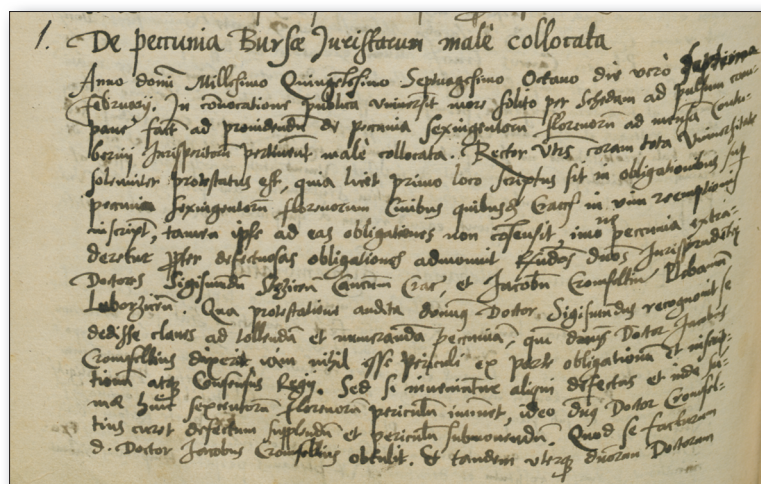 1. De peccunia Bursæ Juristarum malè collocata
Anno domi Millesimo Quingētesimo Septuagesimo Octavo die verò Septima
february, In cōvocatione publica Universit more solito per Schedam ad pulsum cam-
pane fact ad providendū de pecunia sexingentorū florenorū ad mensā Contu-
bernij Jurisperitorū pertinent malè collocata. Rector Vtrs coram tota Universitate
solenniter protestatus est, quia licet primo loco scriptus sit in obligationibus sup
peccunia sexingentorū florenorum Civibus quibusd Cracȝ in vim reemptionis
inscript, tamen ipse ad eas obligationes non cōsensit, imo ne peccunia extra-
deretur ꝓpter defectuosas obligationes admonuit Rndos duos Jurisprudentiȩ
Doctores Sigismundū Canticū Crac, et Jacobū Cromfeltiū Plebanū
Qua protestatione audita dnus Doctor Sigismundus recognovit se
dedisse claves ad tollendū et numerandā pecuniā, qui dnus Doctor Jacobus
Cromfeltius dixerit iam nihil esse periculi ex parte obligationū et inscrip-
tionū atqꝫ Consensus Regij. Sed si inveniatur aliqui defectus et inde sum-
mæ huic sexcentorū florenorū periculū imminet, ideo dnus Doctor Cromfel-
tius curet defectum supplendū et periculū submovendū. Quod se facturum
d. Doctor Jacobus Cromfeltius obtulit. Et tandem uterqꝫ duorum Doctorum